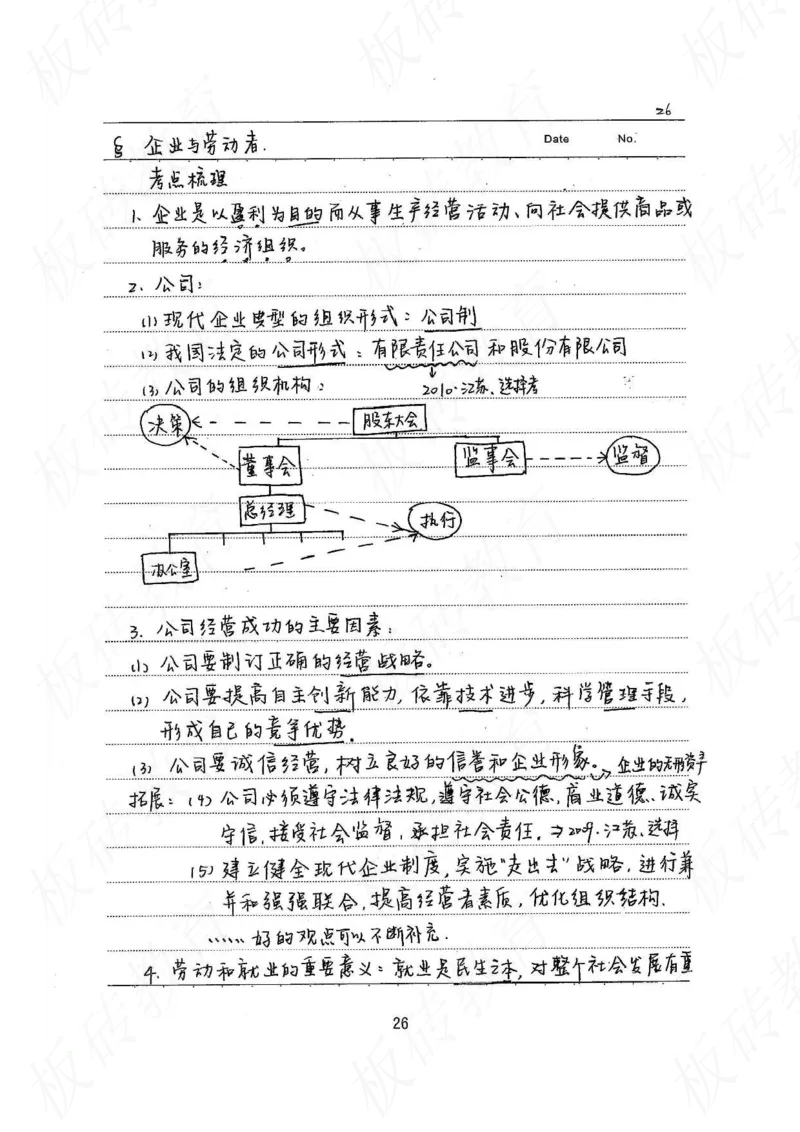 26
§ 企业与劳动者.
Date No.
考点梳理
1、企业是以盈利为目的而从事生产经营活动、向社会提供商品或
服务的经济组织。
2. 公司:
(1) 现代企业典型的组织形式: 公司制
(2) 我国法定的公司形式: 有限责任公司和股份有限公司
(3) 公司的组织机构:
2010·江苏、选择考
决策
股东大会
董事会
监事会
监督
总经理
执行
办公室
3. 公司经营成功的主要因素:
(1) 公司要制订正确的经营战略。
(2) 公司要提高自主创新能力, 依靠技术进步, 科学管理手段,
形成自己的竞争优势.
(3) 公司要诚信经营, 树立良好的信誉和企业形象。→ 企业的无形资产
拓展: (4) 公司必须遵守法律法规, 遵守社会公德、商业道德、诚实
守信, 接受社会监督, 承担社会责任. → 2009·江苏、选择
(5) 建立健全现代企业制度, 实施“走出去”战略, 进行兼
并和强强联合, 提高经营者素质, 优化组织结构.
…… 好的观点可以不断补充.
4. 劳动和就业的重要意义: 就业是民生之本, 对整个社会发展有重
26
板砖教育